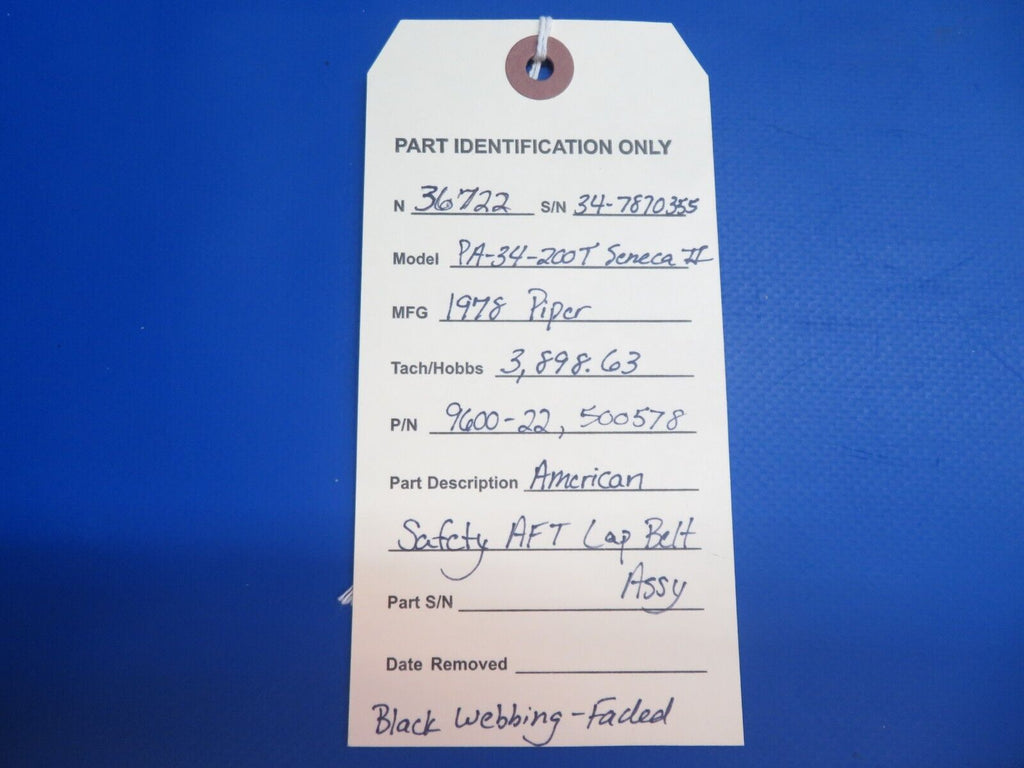 PART IDENTIFICATION ONLY
N 36722 S/N 34-7870355
Model PA-34-200T Seneca II
MFG 1978 Piper
Tach/Hobbs 3,898.63
P/N 9600-22, 500578
Part Description American
Safety AFT Lap Belt
Assy
Part S/N
Date Removed
Black Webbing - Faded